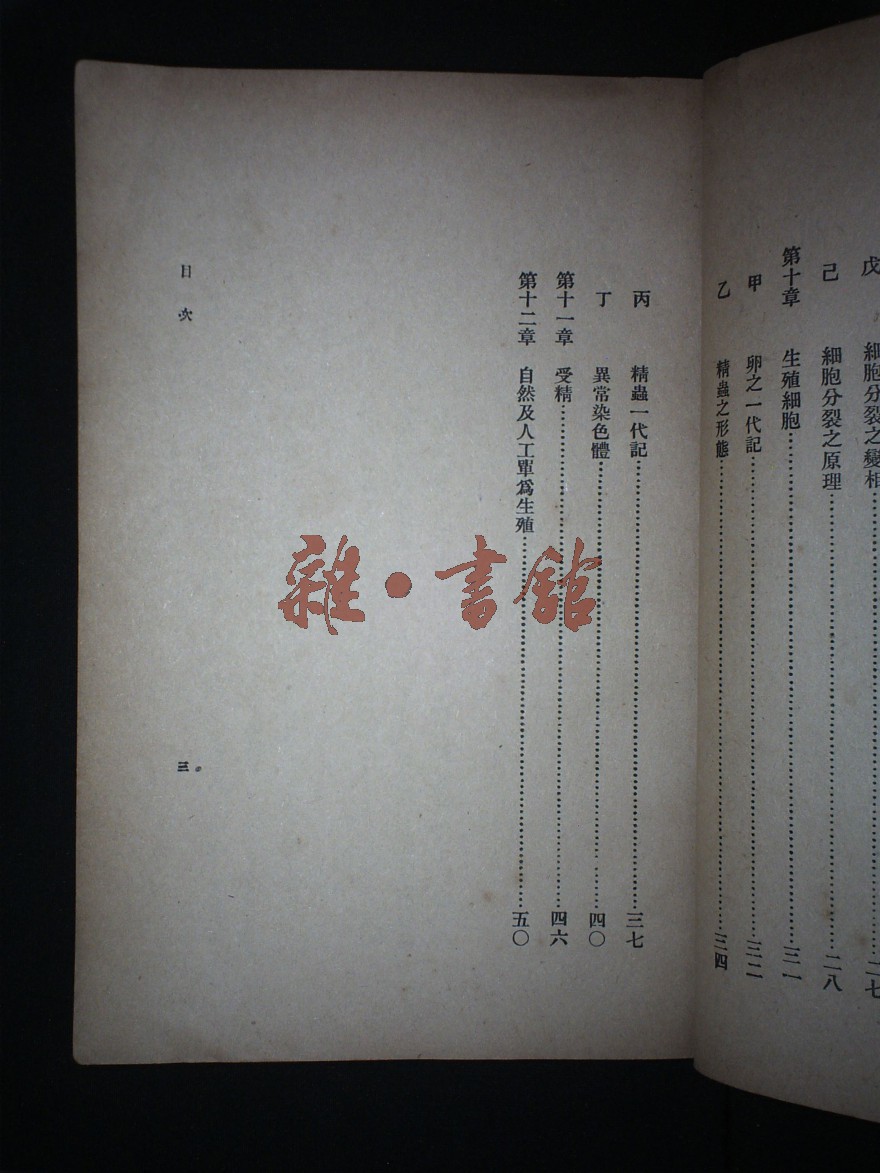 戊 細胞分裂之變相……二七
己 細胞分裂之原理……二八
第十章 生殖細胞……三一
甲 卵之一代記……三二
乙 精蟲之形態……三四
丙 精蟲一代記……三七
丁 異常染色體……四〇
第十一章 受精……四六
第十二章 自然及人工單爲生殖……五〇
目次
三
雜・書館